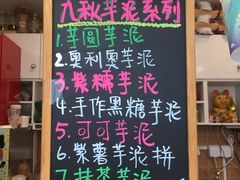 九秋芋泥系列
1.芋圆芋泥
2.奥利奥芋泥
3.紫糯芋泥
4.手作黑糖芋泥
5.可可芋泥
6.紫薯芋泥拼
7.抹茶芋泥